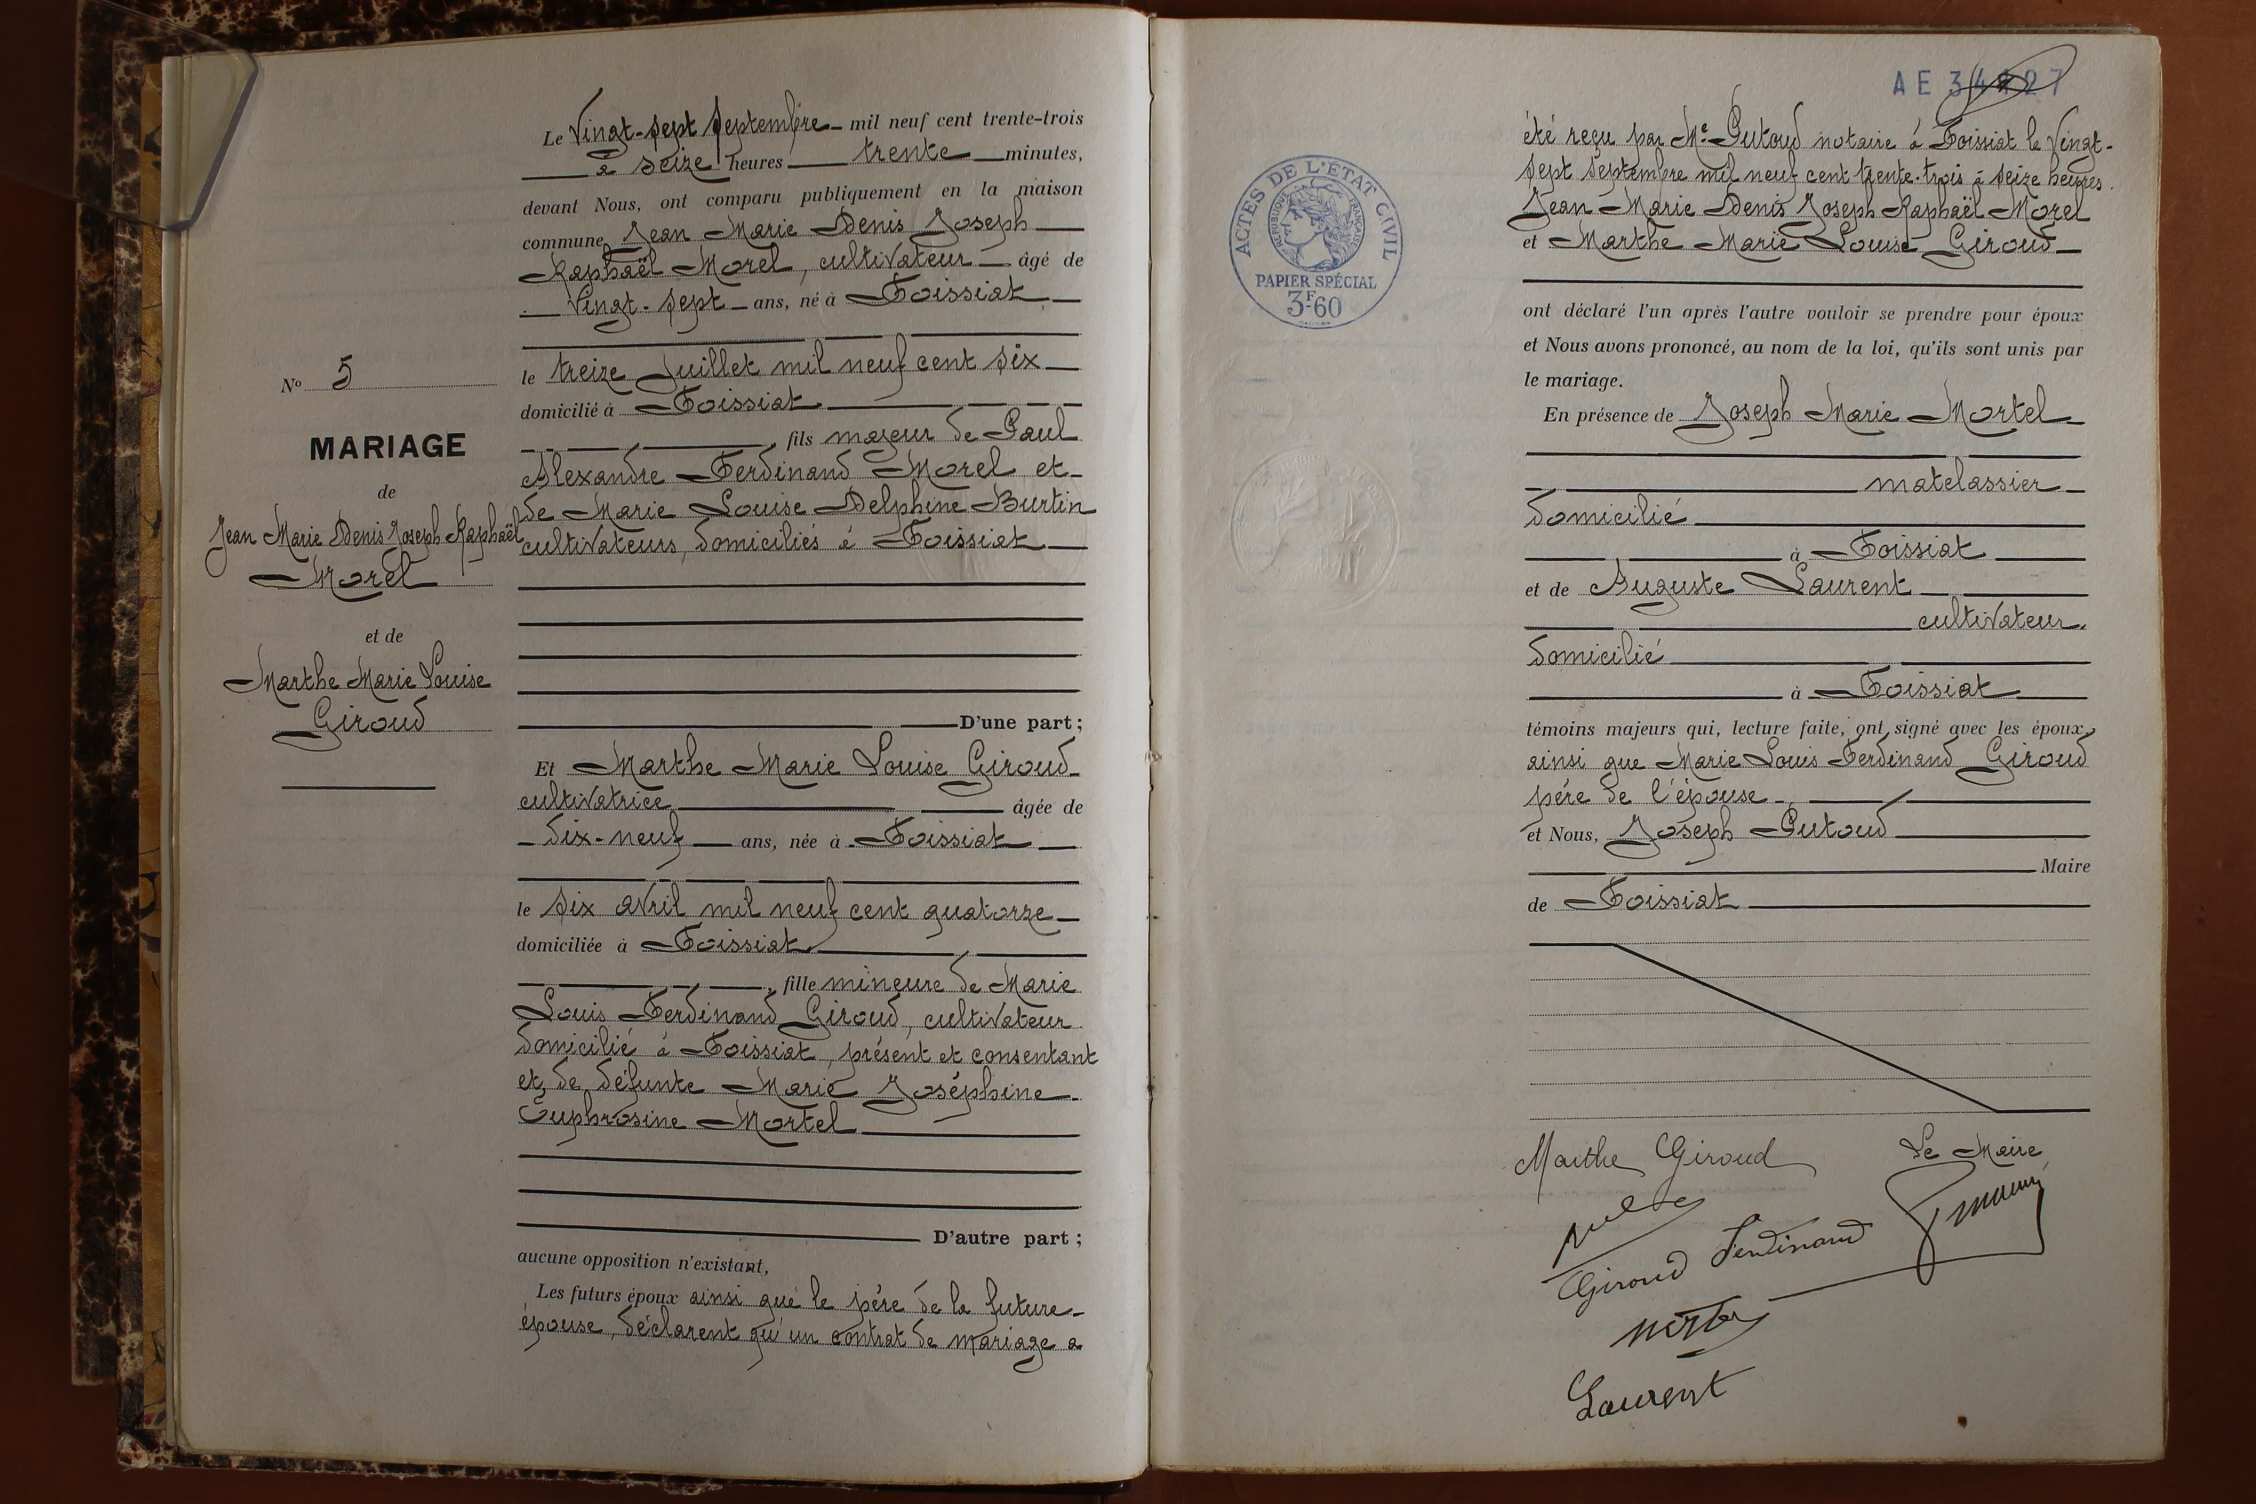 Le Vingt-sept septembre mil neuf cent trente-trois
à seize heures trente minutes,
devant Nous, ont comparu publiquement en la maison
commune Jean Marie Denis Joseph
Raphaël Morel, cultivateur âgé de
Vingt-sept ans, né à Foissiat
le treize Juillet mil neuf cent six
domicilié à Foissiat
fils majeur de Paul
Alexandre Ferdinand Morel et
de Marie Louise Delphine Burtin
cultivateurs, domiciliés à Foissiat
D'une part;
Nº 5
MARIAGE
de
Jean Marie Denis Joseph Raphaël
Morel
et de
Marthe Marie Louise
Giroud
Et Marthe Marie Louise Giroud
cultivatrice âgée de
dix-neuf ans, née à Foissiat
le six avril mil neuf cent quatorze
domiciliée à Foissiat
fille mineure de Marie
Louis Ferdinand Giroud, cultivateur
domicilié à Foissiat, présent et consentant
et de défunte Marie Joséphine
Euphrosine Mortel
D'autre part;
aucune opposition n'existant,
Les futurs époux ainsi que le père de la future
épouse, déclarent qu'un contrat de mariage a
AE 34
ACTES DE L'ETAT CIVIL
REPUBLIQUE FRANÇAISE
PAPIER SPÉCIAL
3F-60
été reçu par Me Putoud notaire à Foissiat le Vingt-
sept septembre mil neuf cent trente-trois à seize heures.
Jean Marie Denis Joseph Raphaël Morel
et Marthe Marie Louise Giroud
ont déclaré l'un après l'autre vouloir se prendre pour époux
et Nous avons prononcé, au nom de la loi, qu'ils sont unis par
le mariage.
En présence de Joseph Marie Mortel
matelassier
domicilié
à Foissiat
et de Auguste Laurent
cultivateur
domicilié
à Foissiat
témoins majeurs qui, lecture faite, ont signé avec les époux,
ainsi que Marie Louis Ferdinand Giroud
père de l'épouse
et Nous, Joseph Putoud
Maire
de Foissiat
Marthe Giroud
Le Maire
Giroud Ferdinand
Laurent